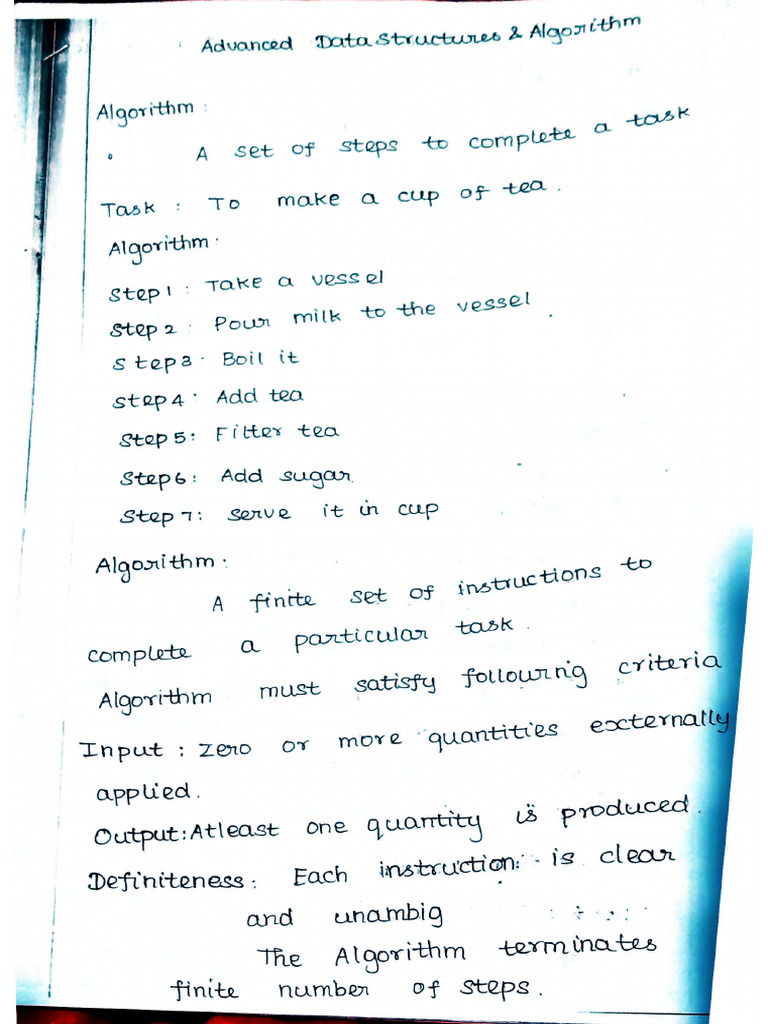 Advanced Data Structures & Algorithm
Algorithm :
A set of steps to complete a task
Task : To make a cup of tea .
Algorithm :
Step 1 : Take a vessel
Step 2 : Pour milk to the vessel .
Step 3 . Boil it
Step 4 . Add tea
Step 5 : Filter tea
Step 6 : Add sugar.
Step 7 : serve it in cup
Algorithm :
A finite set of instructions to
complete a particular task .
Algorithm must satisfy following criteria
Input : zero or more quantities externally
applied .
Output : Atleast one quantity is produced .
Definiteness : Each instruction is clear
and unambig
The Algorithm terminates
finite number of steps .